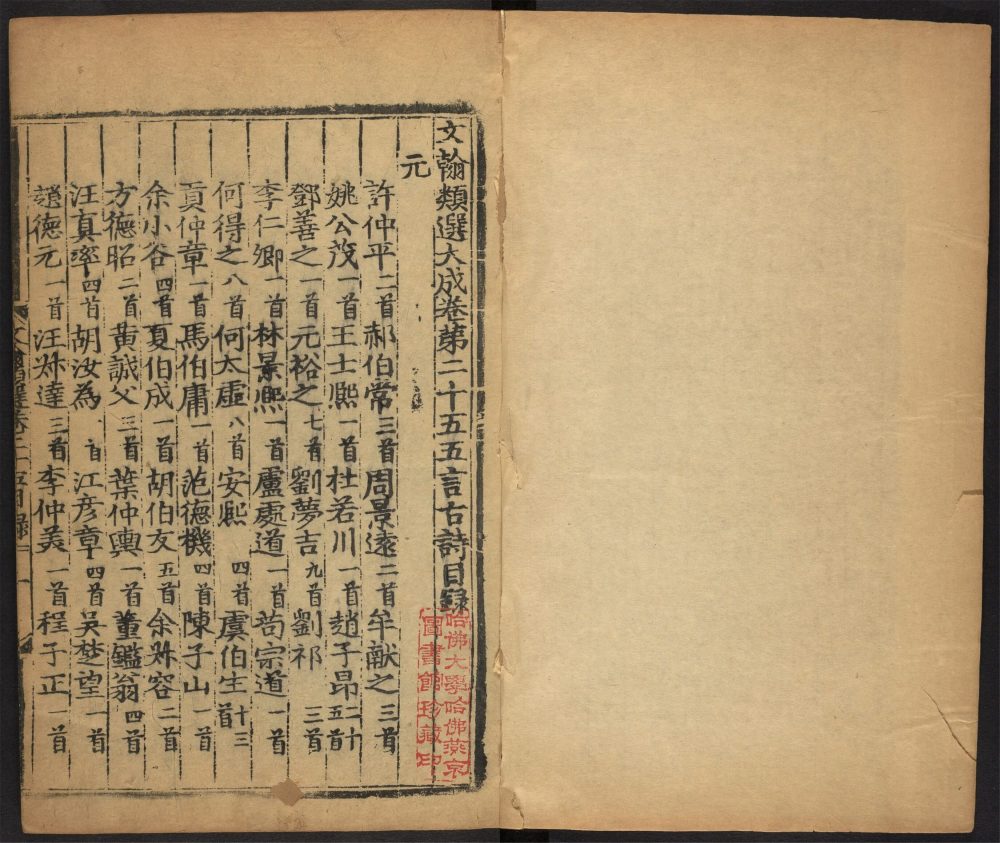 文翰類選大成卷第二十五五言古詩目錄
元
許仲平二首郝伯常三首周景遠二首牟獻之三首
姚公茂一首王士熙一首杜若川一首趙子昂二十五首
鄧善之一首元裕之七首劉夢吉九首劉祁三首
李仁卿一首林景熙一首盧處道一首苟宗道一首
何得之八首何太虛八首安熙四首虞伯生十三首
貢仲章一首馬伯庸一首范德機四首陳子山一首
余小谷四首夏伯成一首胡伯友五首余㳄容二首
方德昭二首黃誠父三首葉仲輿一首董鑑翁四首
汪真率四首胡汝為首江彥章四首吳楚望一首
趙德元一首汪㳄達三首李仲美一首程子正一首
哈佛大學哈佛燕京
圖書館珍藏印